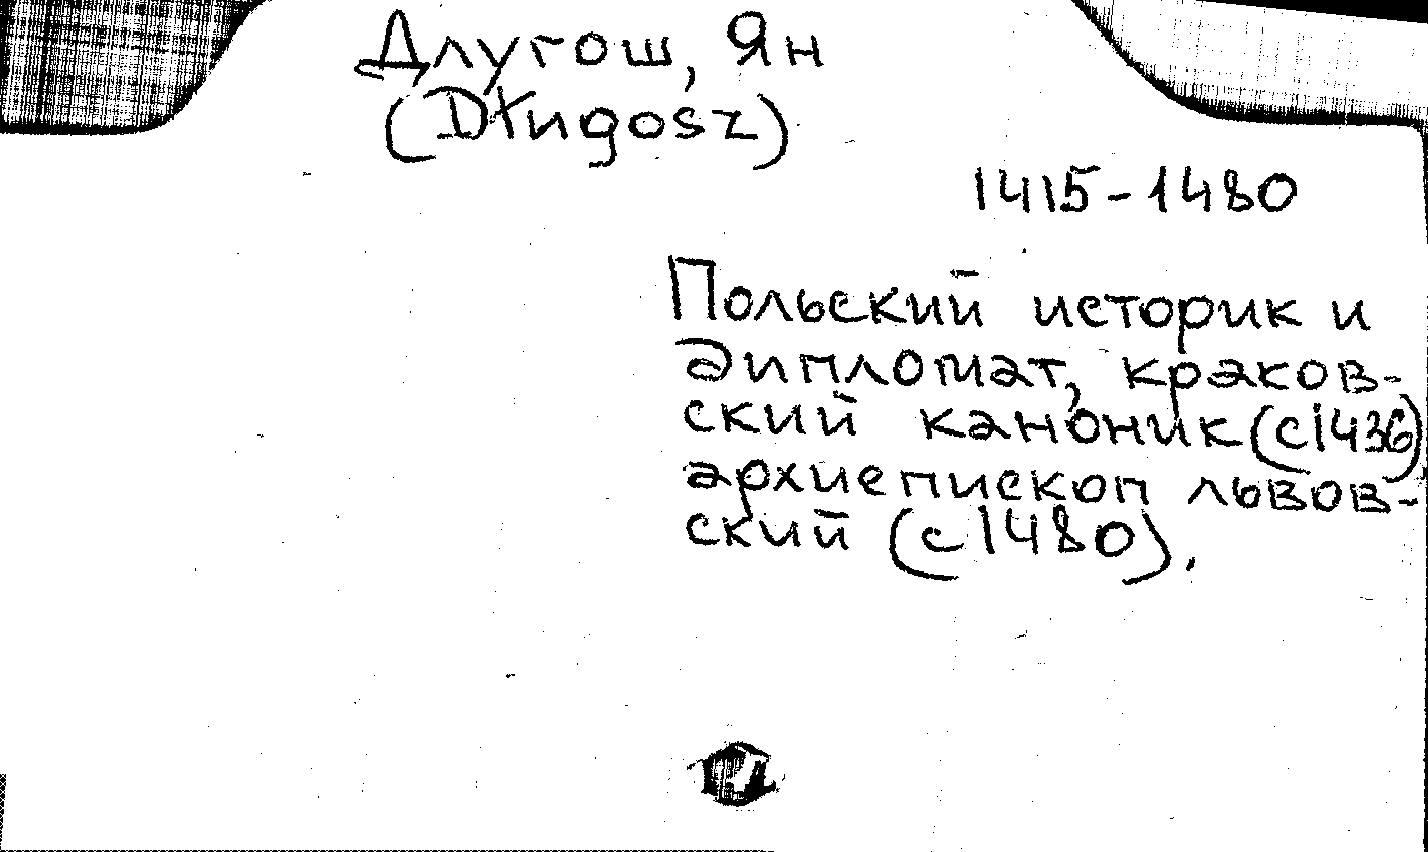 Длугош, Ян
(Długosz)
1415-1480
Польский историк и
дипломат, краков-
ский каноник (с 1436)
архиепископ львов-
ский (с 1480).